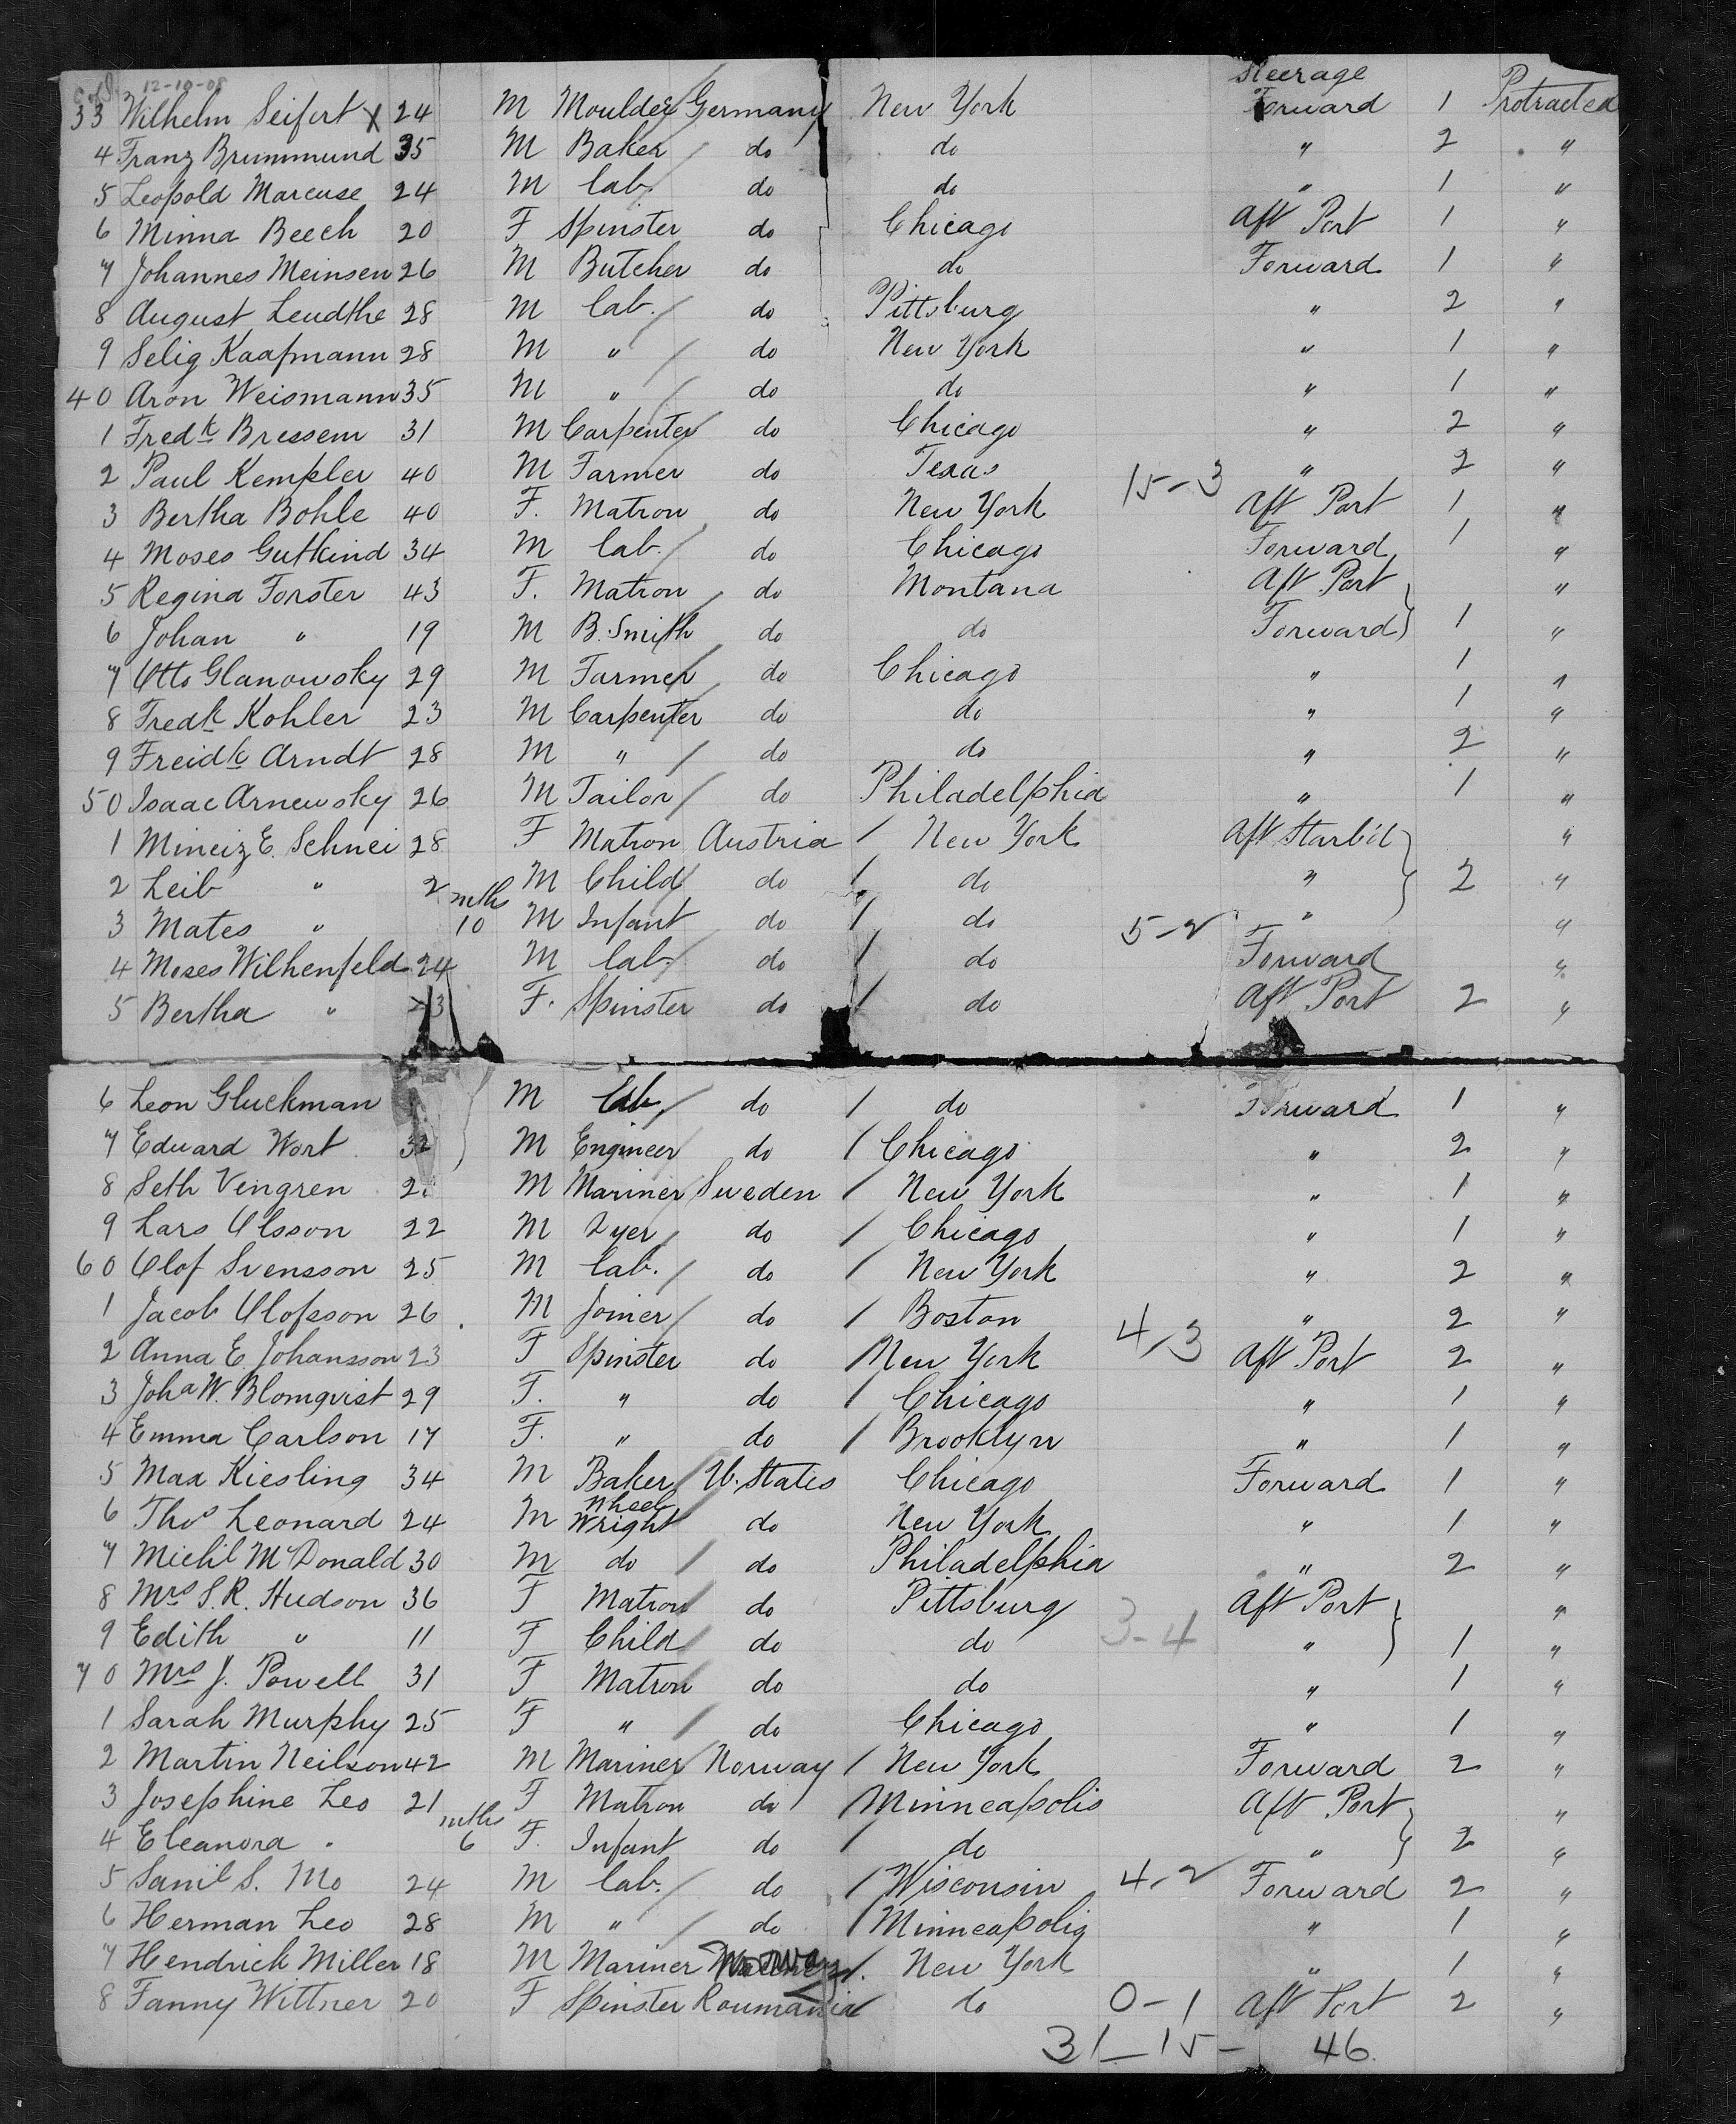 12-10-08 Steerage
33 Wilhelm Seifert X 24 M Moulder Germany New York Forward 1 Protracted
4 Franz Brummund 35 M Baker do do " 2 "
5 Leopold Marcuse 24 M Lab. do do " 1 "
6 Minna Beech 20 F Spinster do Chicago Aft Port 1 "
7 Johannes Meinsen 26 M Butcher do do Forward 1 "
8 August Leudthe 28 M Lab. do Pittsburg " 2 "
9 Selig Kaafmann 28 M " do New York " 1 "
40 Aron Weismann 35 M " do do " 1 "
1 Fredk Bressem 31 M Carpenter do Chicago " 2 "
2 Paul Kempler 40 M Farmer do Texas 15-3 " 2 "
3 Bertha Bohle 40 F. Matron do New York Aft Port 1 "
4 Moses Gutkind 34 M Lab. do Chicago Forward 1 "
5 Regina Forster 43 F. Matron do Montana Aft Port "
6 Johan " 19 M B. Smith do do Forward 1 "
7 Otto Glanowsky 29 M Farmer do Chicago " 1 "
8 Fredk Kohler 23 M Carpenter do do " 1 "
9 Freidk Arndt 28 M " do do " 2 "
50 Isaac Arnewsky 26 M Tailor do Philadelphia " 1 "
1 Mineiz E. Schnei 28 F Matron Austria / New York Aft Starb'd "
2 Leib " 2 M Child do / do " 2 "
3 Mates " mths 10 M Infant do / do 5-2 " "
4 Moses Wilhenfeld 24 M Lab. do / do Forward "
5 Bertha " 23 F. Spinster do / do Aft Port 2 "
6 Leon Gluckman M Lab. do / do Forward 1 "
7 Eduard Wort 32 M Engineer do / Chicago " 2 "
8 Seth Vengren M Mariner Sweden / New York " 1 "
9 Lars Olsson 22 M Dyer do / Chicago " 1 "
60 Olof Svensson 25 M Lab. do / New York " 2 "
1 Jacob Olofsson 26 M Joiner do / Boston " 2 "
2 Anna E. Johansson 23 F Spinster do / New York 4-3 Aft Port 2 "
3 Joha W. Blomqvist 29 F. " do / Chicago " 1 "
4 Emma Carlson 17 F. " do / Brooklyn " 1 "
5 Max Kiesling 34 M Baker U. States Chicago Forward 1 "
6 Thos Leonard 24 M Wheel Wright do New York " 1 "
7 Michl McDonald 30 M do do Philadelphia " 2 "
8 Mrs S. R. Hudson 36 F Matron do Pittsburg Aft Port "
9 Edith " 11 F Child do do 3-4 " 1 "
70 Mrs J. Powell 31 F Matron do do " 1 "
1 Sarah Murphy 25 F " do Chicago " 1 "
2 Martin Neilson 42 M Mariner Norway / New York Forward 2 "
3 Josephine Leo 21 F Matron do / Minneapolis Aft Port "
4 Eleanora " mths 6 F. Infant do / do " 2 "
5 Saml S. Mo 24 M Lab. do / Wisconsin 4-2 Forward 2 "
6 Herman Leo 28 M " do / Minneapolis " 1 "
7 Hendrick Miller 18 M Mariner Norway /. New York " 1 "
8 Fanny Wittner 20 F Spinster Roumania do 0-1 Aft Port 2 "
31-15- 46.